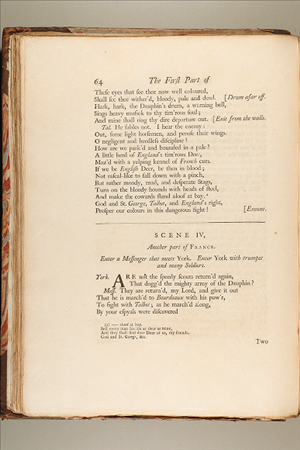 64 The First Part of
These eyes that see thee now well coloured,
Shall see thee wither'd, bloody, pale and dead. [Drum afar off.
Hark, hark, the Dauphin's drum, a warning bell,
Sings heavy musick to thy tim'rous soul;
And mine shall ring thy dire departure out. [Exit from the walls.
Tal. He fables not. I hear the enemy:
Out, some light horsemen, and peruse their wings.
O negligent and heedless discipline!
How are we park'd and bounded in a pale?
A little herd of England's tim'rous Deer,
Maz'd with a yelping kennel of French curs.
If we be English Deer, be then in blood;
Not rascal-like to fall down with a pinch,
But rather moody, mad, and desperate Stags,
Turn on the bloody hounds with heads of steel,
And make the cowards stand aloof at bay.
God and St. George, Talbot, and England's right,
Prosper our colours in this dangerous fight! [Exeunt.
SCENE IV,
Another part of FRANCE.
Enter a Messenger that meets York. Enter York with trumpet
and many Soldiers.
York. ARE not the speedy scouts return'd again,
That dogg'd the mighty army of the Dauphin?
Mess. They are return'd, my Lord, and give it out
That he is march'd to Bourdeaux with his pow'r,
To fight with Talbot; as he march'd along,
By your espyals were discovered
stand at bay.
Sell every man his life as dear as mine,
And they shall find dear Deer of us, my friends.
God and St. George, &c.
Two